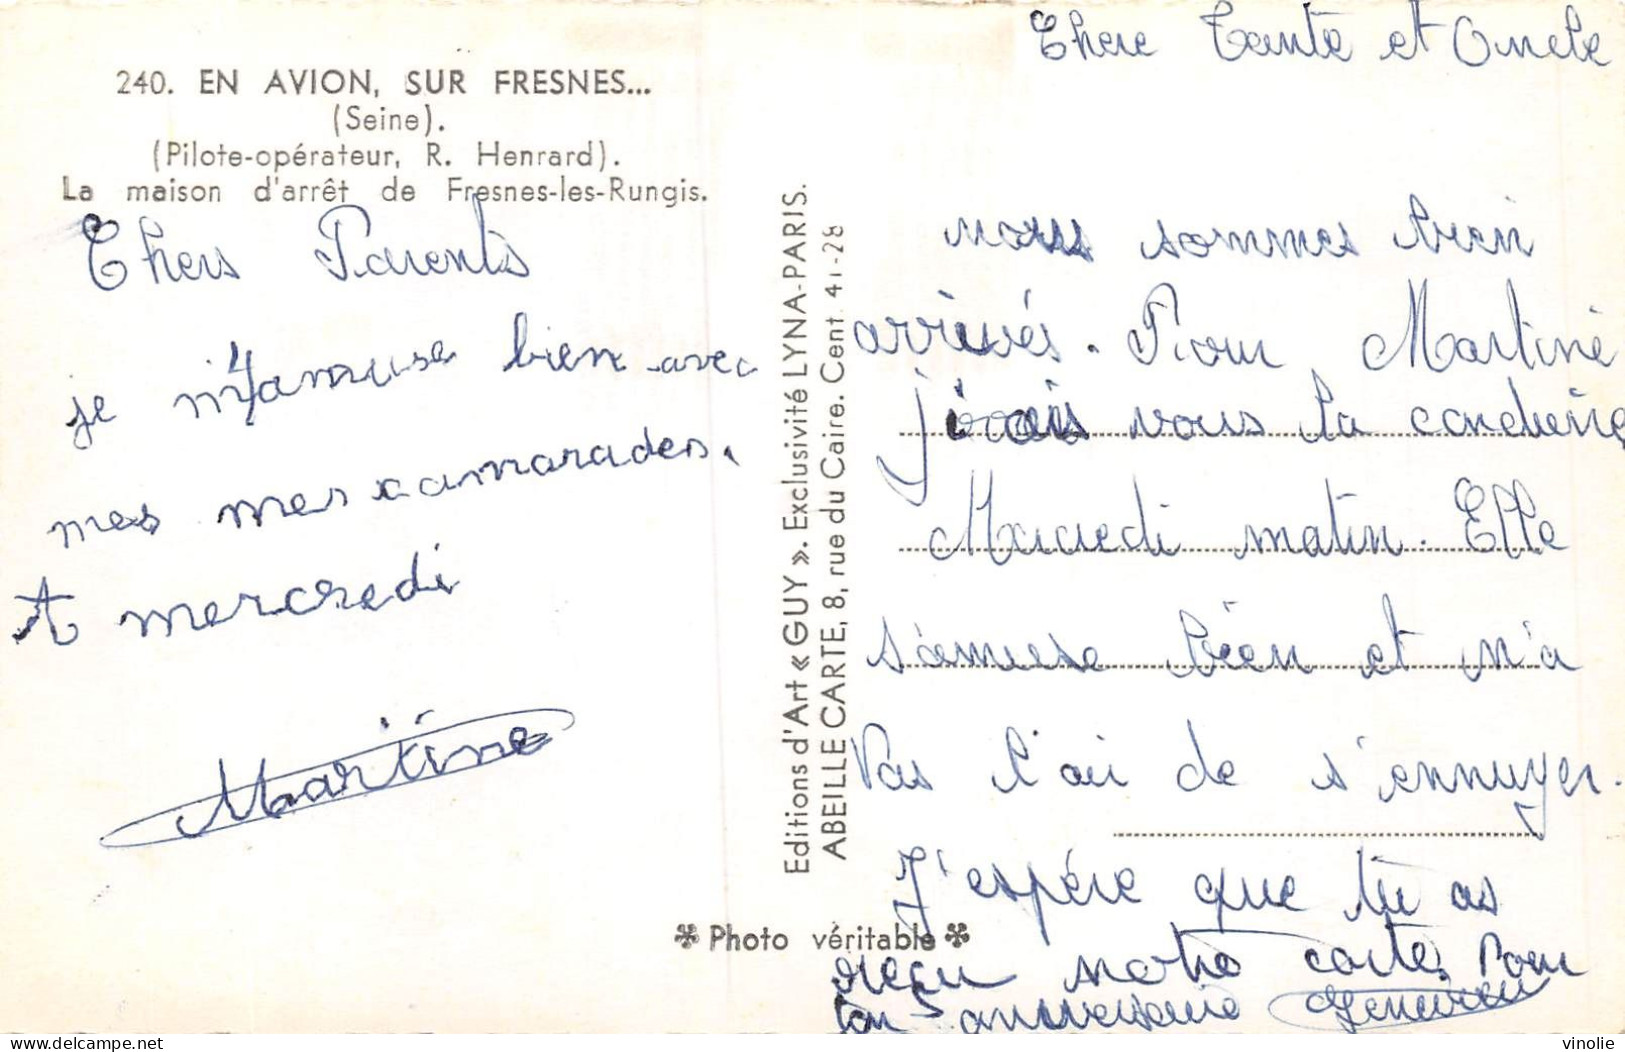 240. EN AVION, SUR FRESNES...
(Seine).
(Pilote-opérateur, R. Henrard).
La maison d'arrêt de Fresnes-les-Rungis.
Chers Parents
je m'amuse bien avec
mes mes camarades.
A mercredi
Martine
Editions d'Art « GUY ». Exclusivité LYNA-PARIS.
ABEILLE CARTE, 8, rue du Caire. Cent. 41-28
Photo véritable
Chere Tante et Oncle
nous sommes bien
arrivés. Pour Martine
j'irais vous la conduire
Mercredi matin. Elle
s'amuse bien et n'a
Pas l'air de s'ennuyer.
J'espére que tu as
reçu notre carte Pour
ton anniversaire Geneviève
vinolie